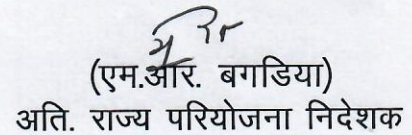 (एम.आर. बगडिया)
अति. राज्य परियोजना निदेशक